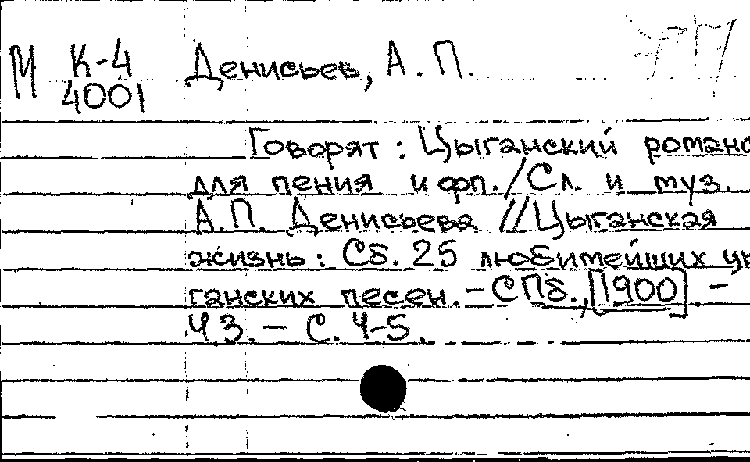 М К-4 Денисьев, А. П.
4001
Говорят: Цыганский романс
для пения и фп./Сл. и муз.
А.П. Денисьева //Цыганская
жизнь: Сб. 25 любимейших цы
ганских песен. - СПб., [1900] -
Ч 3. - С. 4-5.